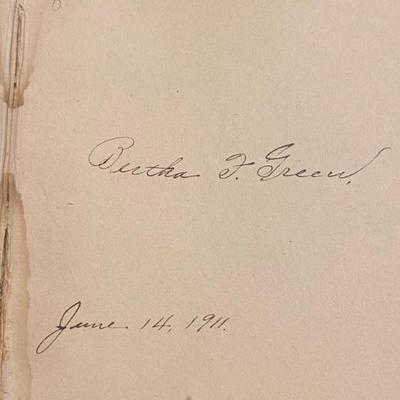 Bertha F. Green.
June 14, 1911.